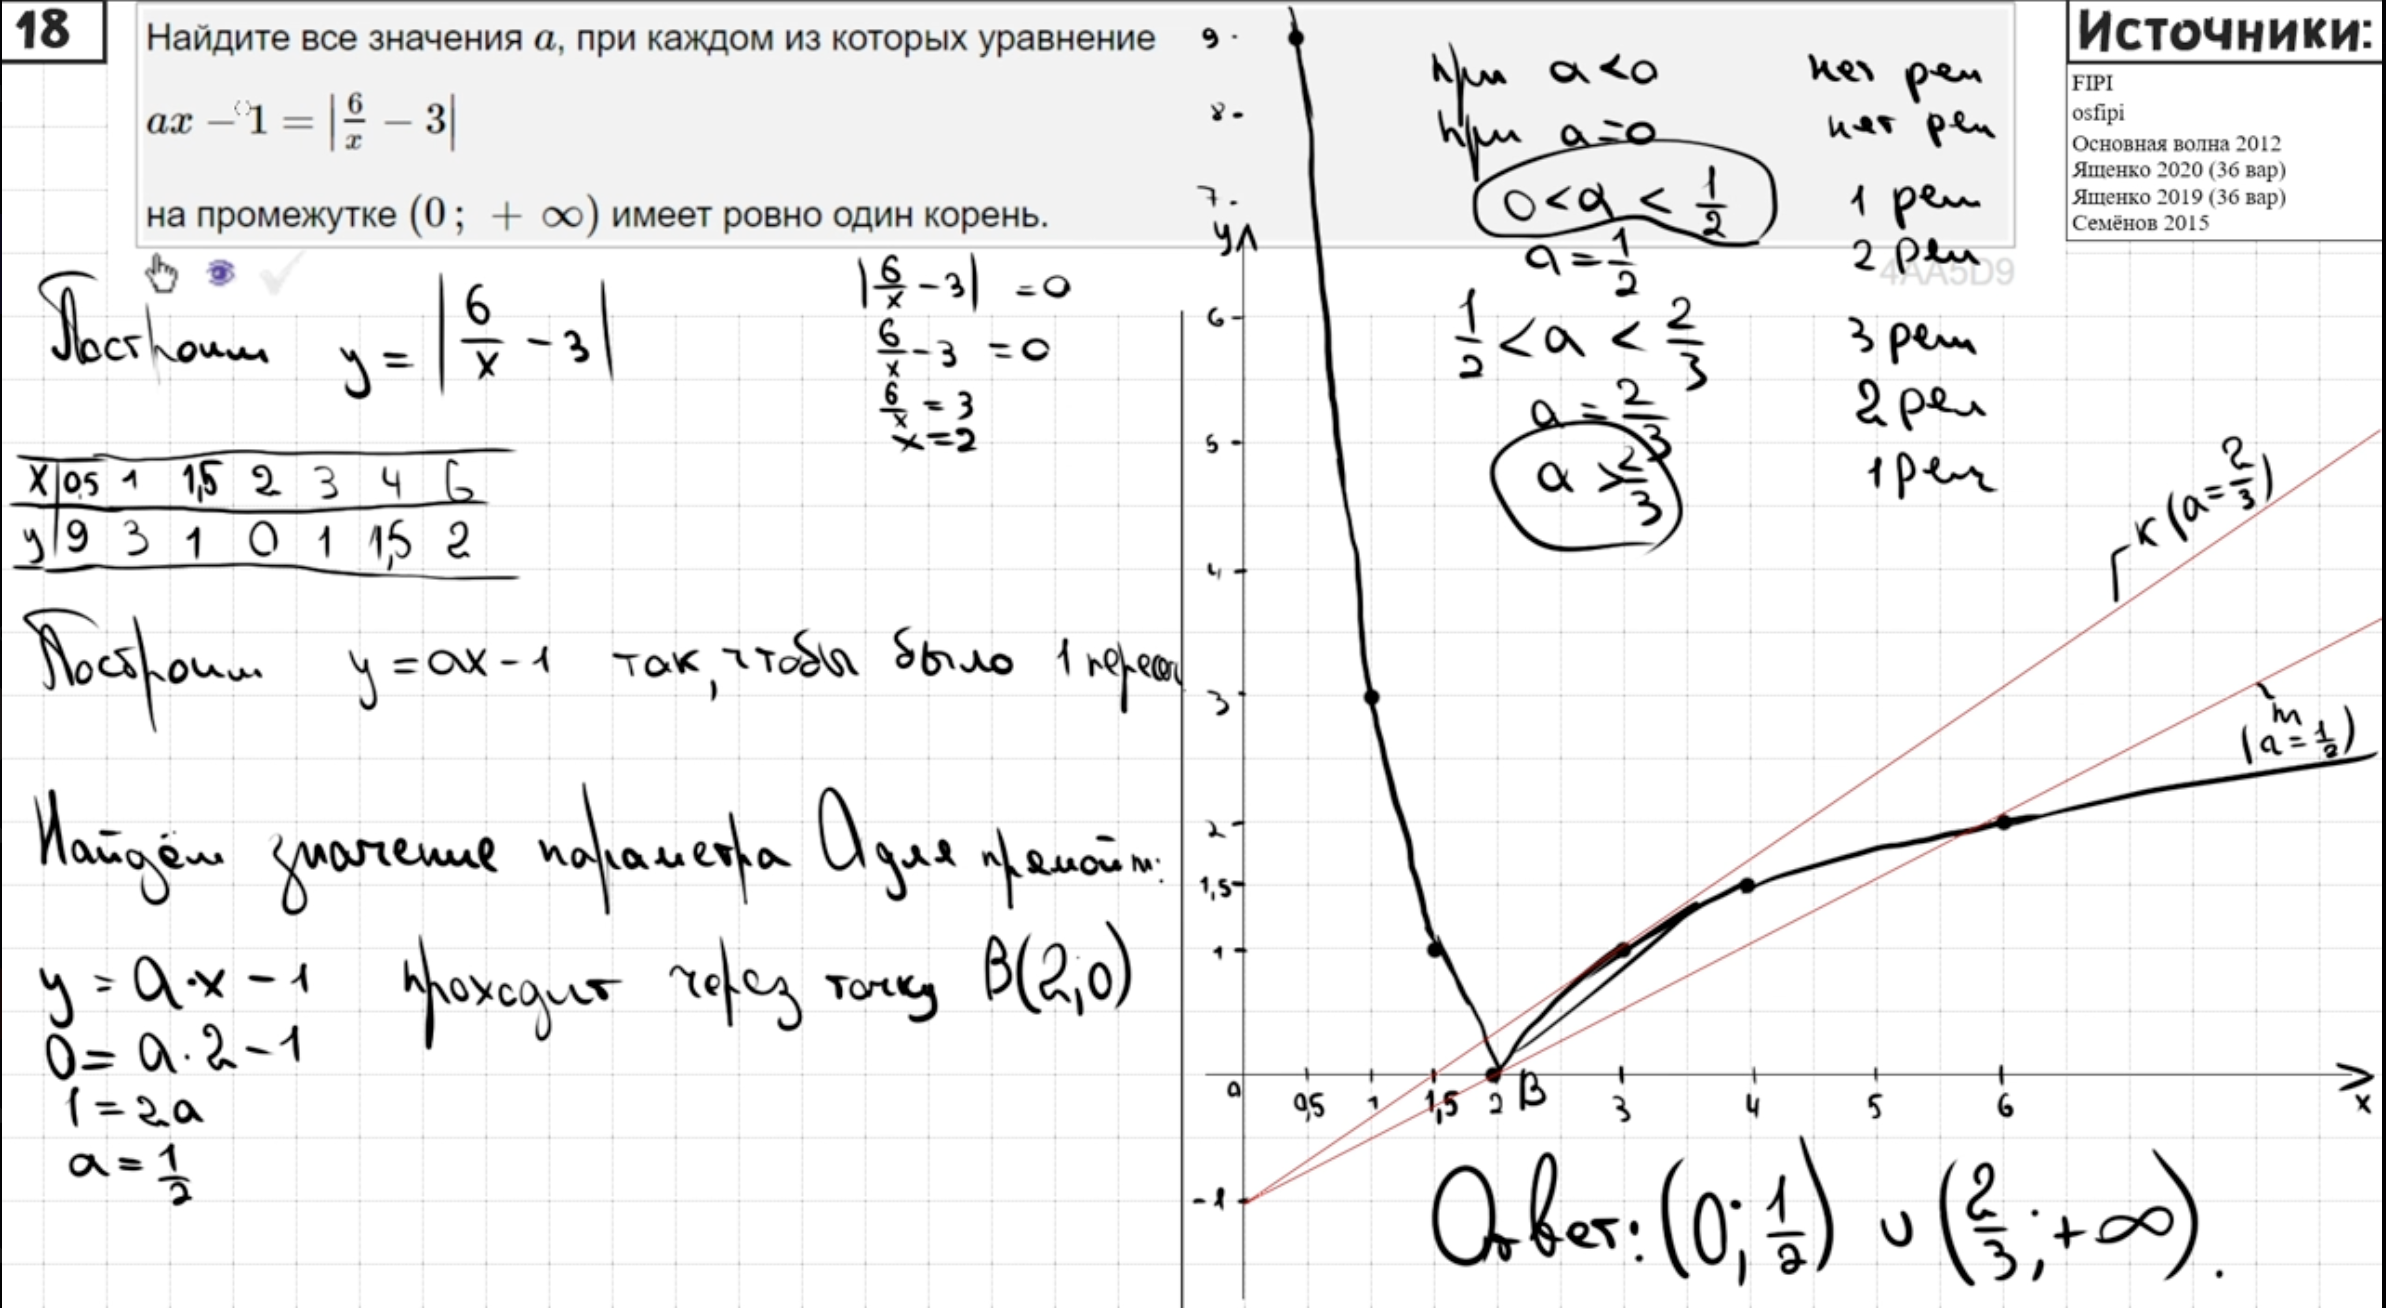 18
Найдите все значения a, при каждом из которых уравнение
ax − 1 = |6/x − 3|
на промежутке (0; + ∞) имеет ровно один корень.
Источники:
FIPI
osfipi
Основная волна 2012
Ященко 2020 (36 вар)
Ященко 2019 (36 вар)
Семёнов 2015
4AA5D9
Построим y = |6/x − 3|
|6/x − 3| = 0
6/x − 3 = 0
6/x = 3
x = 2
x 0,5 1 1,5 2 3 4 6
y 9 3 1 0 1 1,5 2
Построим y = ax − 1 так, чтобы было 1 пересеч
Найдём значение параметра a для прямой m:
y = a·x − 1 проходит через точку B(2;0)
0 = a·2 − 1
1 = 2a
a = 1/2
при a < 0 нет реш
при a = 0 нет реш
0 < a < 1/2 1 реш
a = 1/2 2 реш
1/2 < a < 2/3 3 реш
a = 2/3 2 реш
a > 2/3 1 реш
K (a = 2/3)
m
(a = 1/2)
y
9
8
7
6
5
4
3
2
1,5
1
0
-1
0,5 1 1,5 2 B 3 4 5 6 x
Ответ: (0; 1/2) ∪ (2/3; +∞).